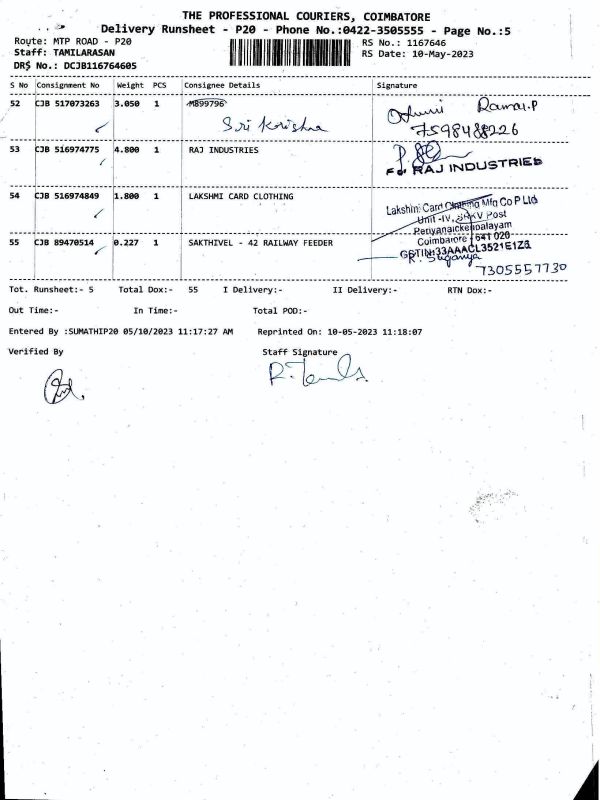 THE PROFESSIONAL COURIERS, COIMBATORE
Delivery Runsheet - P20 - Phone No.:0422-3505555 - Page No.:5
Route: MTP ROAD - P20
Staff: TAMILARASAN
DRS No.: DCJB116764605
RS No.: 1167646
RS Date: 10-May-2023
S No Consignment No Weight PCS Consignee Details Signature
52 CJB 517073263 3.050 1 M899796
Sri Krishna
Ramar.P
7598488226
53 CJB 516974775 4.800 1 RAJ INDUSTRIES
For RAJ INDUSTRIES
54 CJB 516974849 1.800 1 LAKSHMI CARD CLOTHING
Lakshmi Card Clothing Mfg Co P Ltd
Unit -IV, SRKV Post
Periyanaickenpalayam
Coimbatore - 641 020
GSTIN:33AAACL3521E1Z8
55 CJB 89470514 0.227 1 SAKTHIVEL - 42 RAILWAY FEEDER
R. Suganya
7305557730
Tot. Runsheet:- 5 Total Dox:- 55 I Delivery:- II Delivery:- RTN Dox:-
Out Time:- In Time:- Total POD:-
Entered By :SUMATHIP20 05/10/2023 11:17:27 AM Reprinted On: 10-05-2023 11:18:07
Verified By Staff Signature